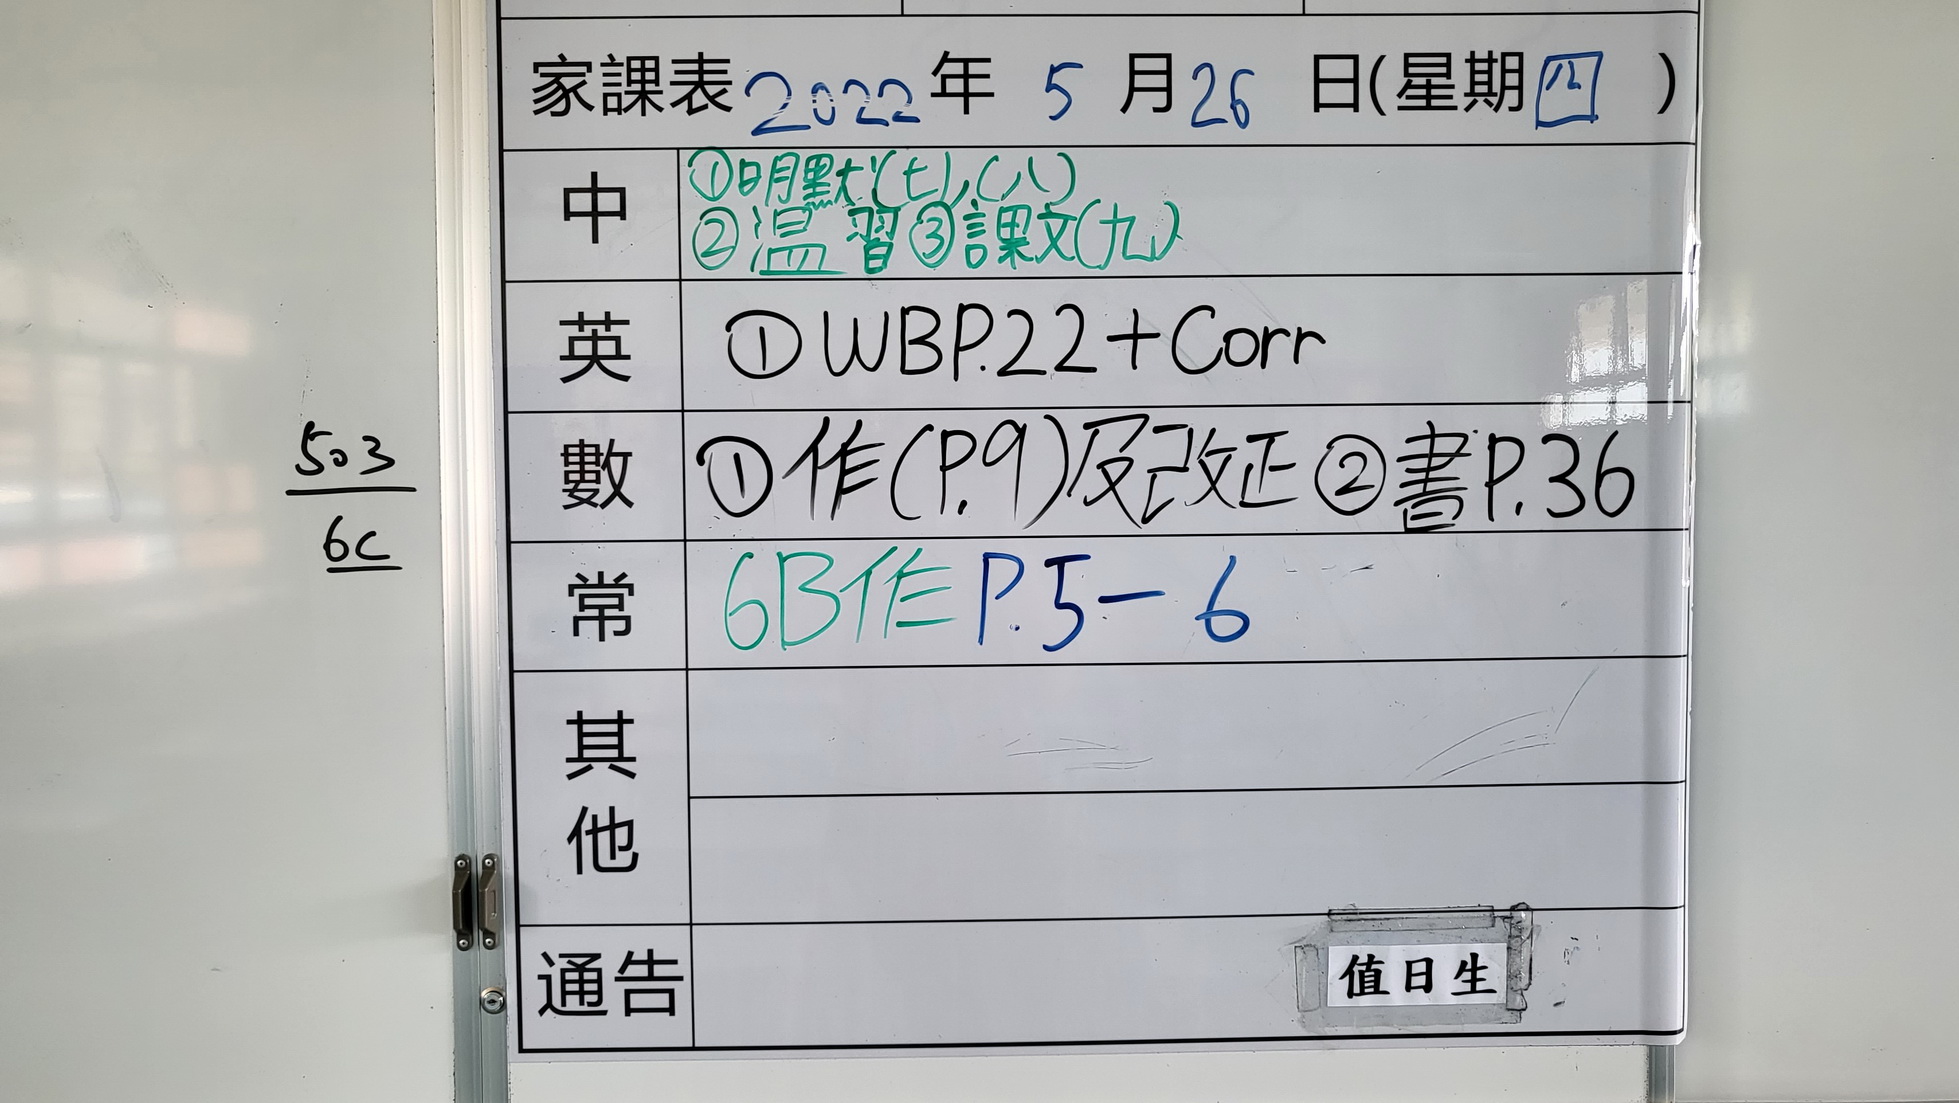 家課表 2022 年 5 月 26 日(星期四)
中
①明默(七),(八)
②温習③課文(九)
英
①WBP.22+Corr
數
①作(P.9)及改正②書P.36
常
6B作P.5-6
其他
通告
值日生
503
6C